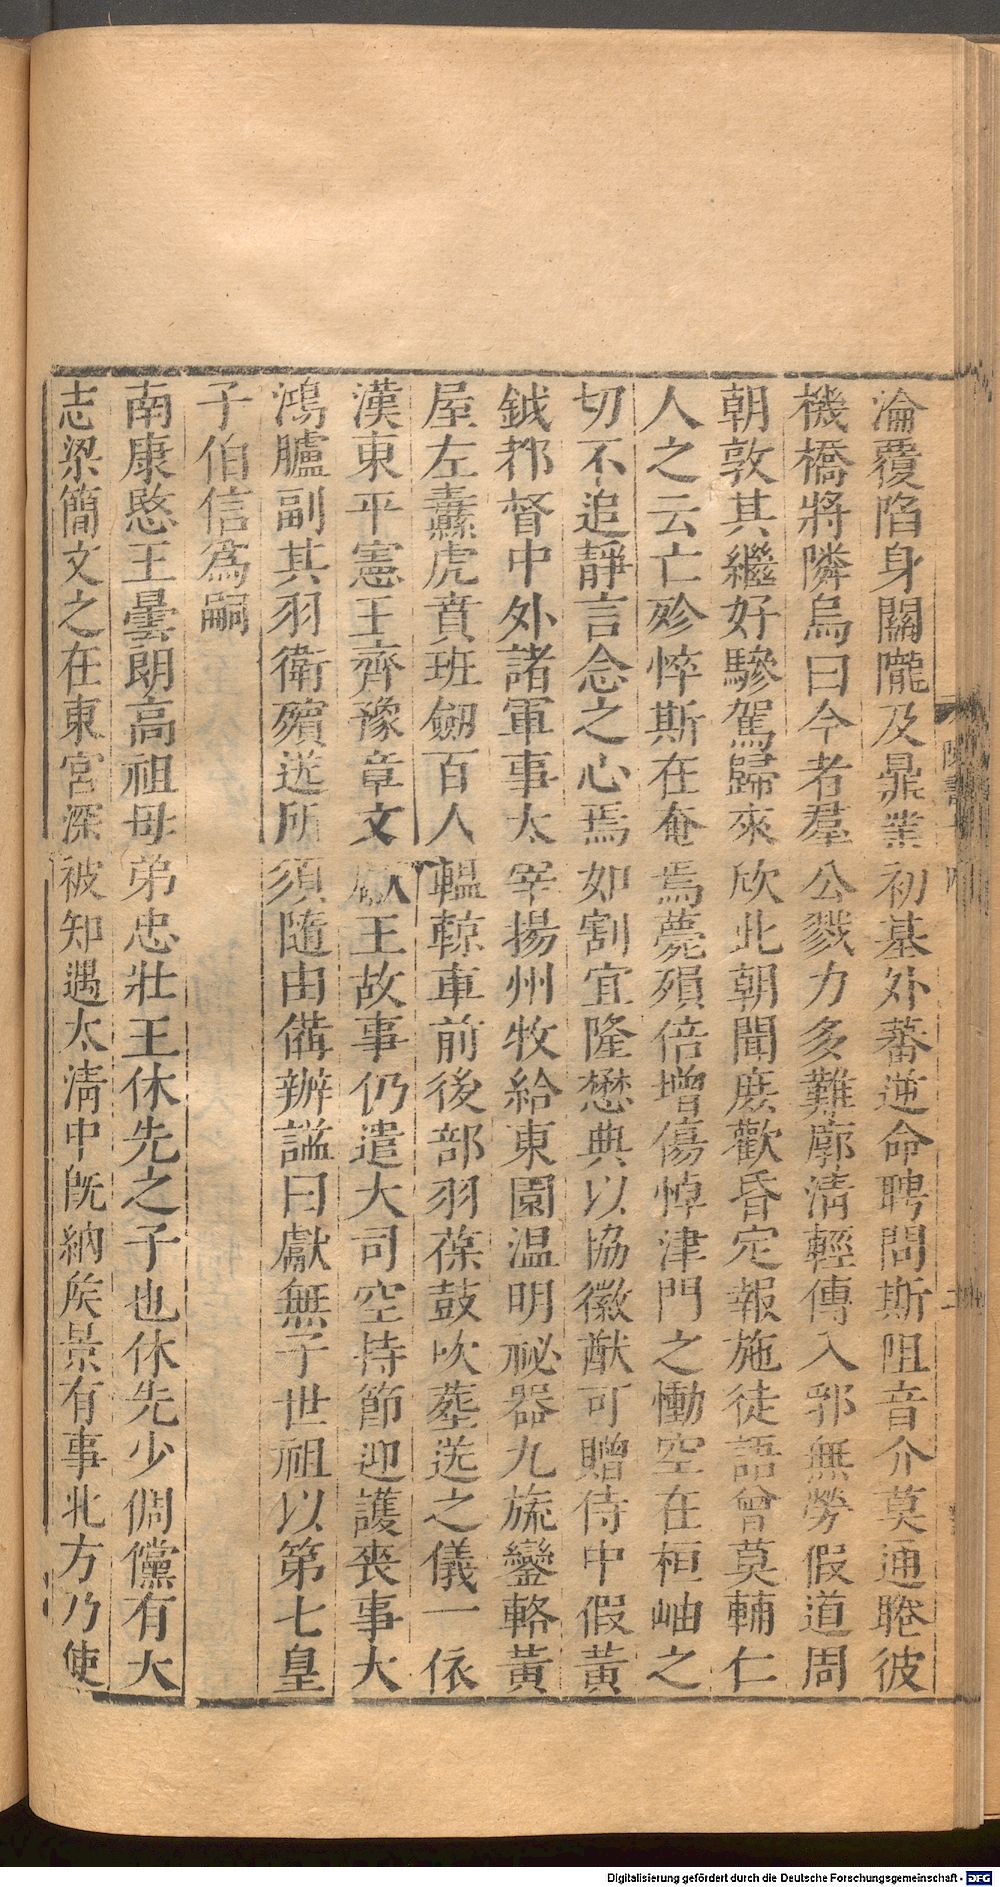 淪覆陷身關隴及鼎業初基外蕃逆命聘問斯阻音介莫通睠彼
機橋將隣烏曰今者羣公戮力多難廓清輕傳入郢無勞假道周
朝敦其繼好驂駕歸來欣此朝聞庶歡昏定報施徒語曾莫輔仁
人之云亡殄悴斯在奄焉薨殞倍增傷悼津門之慟空在桓岫之
切不追靜言念之心焉如割宜隆懋典以協徽猷可贈侍中假黃
鉞都督中外諸軍事太宰揚州牧給東園温明祕器九旒鑾輅黃
屋左纛虎賁班劒百人轀輬車前後部羽葆鼓吹葬送之儀一依
漢東平憲王齊豫章文獻王故事仍遣大司空持節迎護喪事大
鴻臚副其羽衛殯送所須隨由備辦謚曰獻無子世祖以第七皇
子伯信爲嗣
南康愍王曇朗高祖母弟忠壯王休先之子也休先少倜儻有大
志梁簡文之在東宮深被知遇太清中旣納矦景有事北方乃使
Digitalisierung gefördert durch die Deutsche Forschungsgemeinschaft - DFG